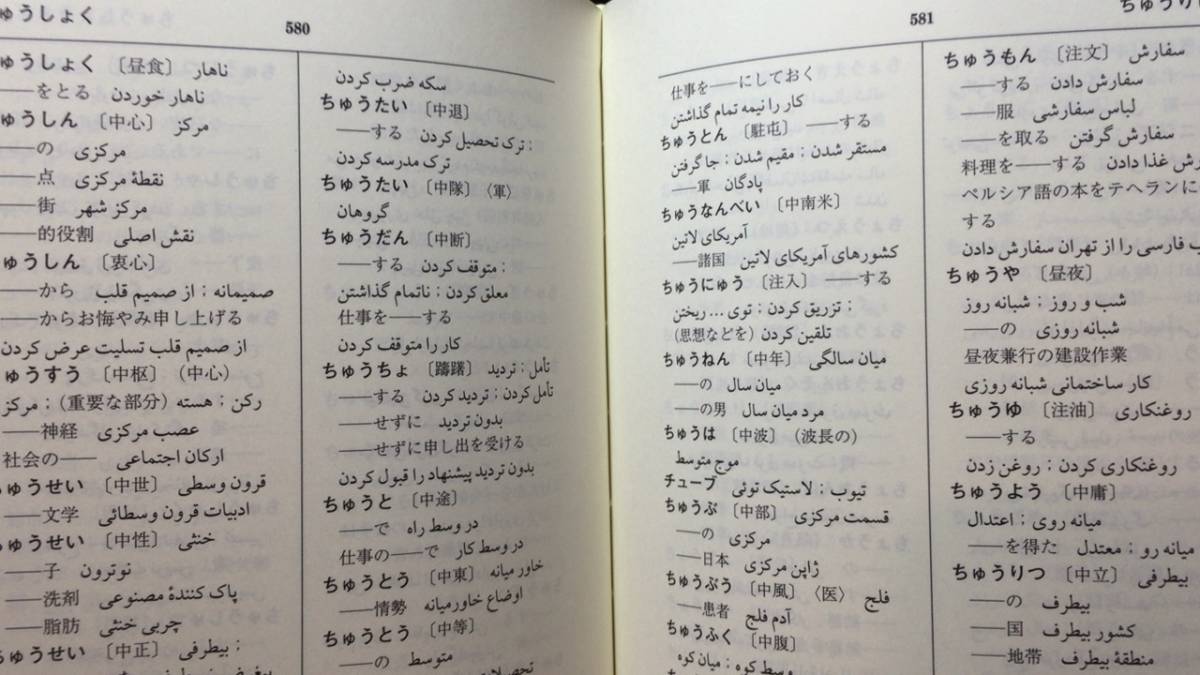 ゅうしょく
580
ゅうしょく〔昼食〕 ناهار
——をとる ناهار خوردن
ゅうしん〔中心〕 مرکز
——の مرکزی
——点 نقطهٔ مرکزی
——街 مرکز شهر
——的役割 نقش اصلی
ゅうしん〔衷心〕
——から صمیمانه ; از صمیم قلب
——からお悔やみ申し上げる
از صمیم قلب تسلیت عرض کردن
ゅうすう〔中枢〕(中心)
رکن ; (重要な部分) هسته ; مرکز
——神経 عصب مرکزی
社会の—— ارکان اجتماعی
ゅうせい〔中世〕 قرون وسطی
——文学 ادبیات قرون وسطائی
ゅうせい〔中性〕 خنثی
——子 نوترون
——洗剤 پاک کنندهٔ مصنوعی
——脂肪 چربی خنثی
ゅうせい〔中正〕 بیطرفی ;
سکه ضرب کردن
ちゅうたい〔中退〕
——する ترک تحصیل کردن ;
ترک مدرسه کردن
ちゅうたい〔中隊〕〈軍〉
گروهان
ちゅうだん〔中断〕
——する متوقف کردن ;
معلق کردن ; ناتمام گذاشتن
仕事を——する
کار را متوقف کردن
ちゅうちょ〔躊躇〕 تأمل ; تردید
——する تأمل کردن ; تردید کردن
——せずに بدون تردید
——せずに申し出を受ける
بدون تردید پیشنهاد را قبول کردن
ちゅうと〔中途〕
——で در وسط راه
仕事の——で در وسط کار
ちゅうとう〔中東〕 خاور میانه
——情勢 اوضاع خاورمیانه
ちゅうとう〔中等〕
——の متوسط
581
仕事を——にしておく
کار را نیمه تمام گذاشتن
ちゅうとん〔駐屯〕 ——する
مستقر شدن ; مقیم شدن ; جا گرفتن
——軍 پادگان
ちゅうなんべい〔中南米〕
آمریکای لاتین
——諸国 کشورهای آمریکای لاتین
ちゅうにゅう〔注入〕 ——する
تزریق کردن ; توی … ریختن ;
(思想などを) تلقین کردن
ちゅうねん〔中年〕 میان سالگی
——の میان سال
——の男 مرد میان سال
ちゅうは〔中波〕(波長の)
موج متوسط
チューブ تیوب ; لاستیک توئی
ちゅうぶ〔中部〕 قسمت مرکزی
——の مرکزی
——日本 ژاپن مرکزی
ちゅうぶう〔中風〕〈医〉 فلج
——患者 آدم فلج
ちゅうふく〔中腹〕
وسط کوه ; میان کوه
ちゅうもん〔注文〕 سفارش
——する سفارش دادن
——服 لباس سفارشی
——を取る سفارش گرفتن
料理を——する سفارش غذا دادن
ペルシア語の本をテヘランに
する
فارسی را از تهران سفارش دادن
ちゅうや〔昼夜〕
شب و روز ; شبانه روز
——の شبانه روزی
昼夜兼行の建設作業
کار ساختمانی شبانه روزی
ちゅうゆ〔注油〕 روغنکاری
——する
روغنکاری کردن ; روغن زدن
ちゅうよう〔中庸〕
میانه روی ; اعتدال
——を得た میانه رو ; معتدل
ちゅうりつ〔中立〕 بیطرفی
——の بیطرف
——国 کشور بیطرف
——地帯 منطقهٔ بیطرف